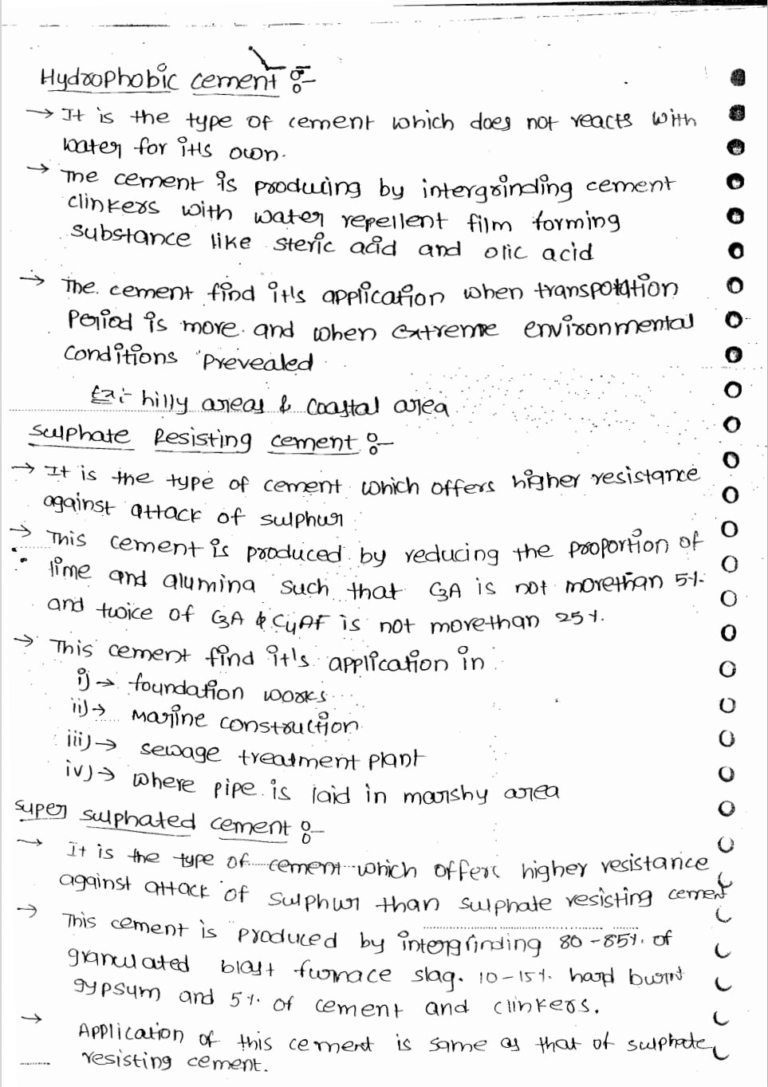 Hydrophobic cement :-
→ It is the type of cement which does not reacts with
water for it's own.
→ The cement is producing by intergrinding cement
clinkers with water repellent film forming
substance like steric acid and olic acid
→ The cement find it's application when transpotation
Period is more and when extreme environmental
conditions prevealed
Ex:- hilly areas & Coastal area
Sulphate Resisting cement :-
→ It is the type of cement which offers higher resistance
against attack of sulphur
→ This cement is produced by reducing the proportion of
lime and alumina such that C3A is not morethan 5%
and twice of C3A & C4AF is not morethan 25%.
→ This cement find it's application in
i) → foundation works
ii) → Marine construction
iii) → sewage treatment plant
iv) → where pipe is laid in marshy area
Super sulphated cement :-
→ It is the type of cement which offers higher resistance
against attack of sulphur than sulphate resisting cement
→ This cement is produced by intergrinding 80-85% of
granulated blast furnace slag. 10-15% hard burnt
gypsum and 5% of cement and clinkers.
→ Application of this cement is same as that of sulphate
resisting cement.